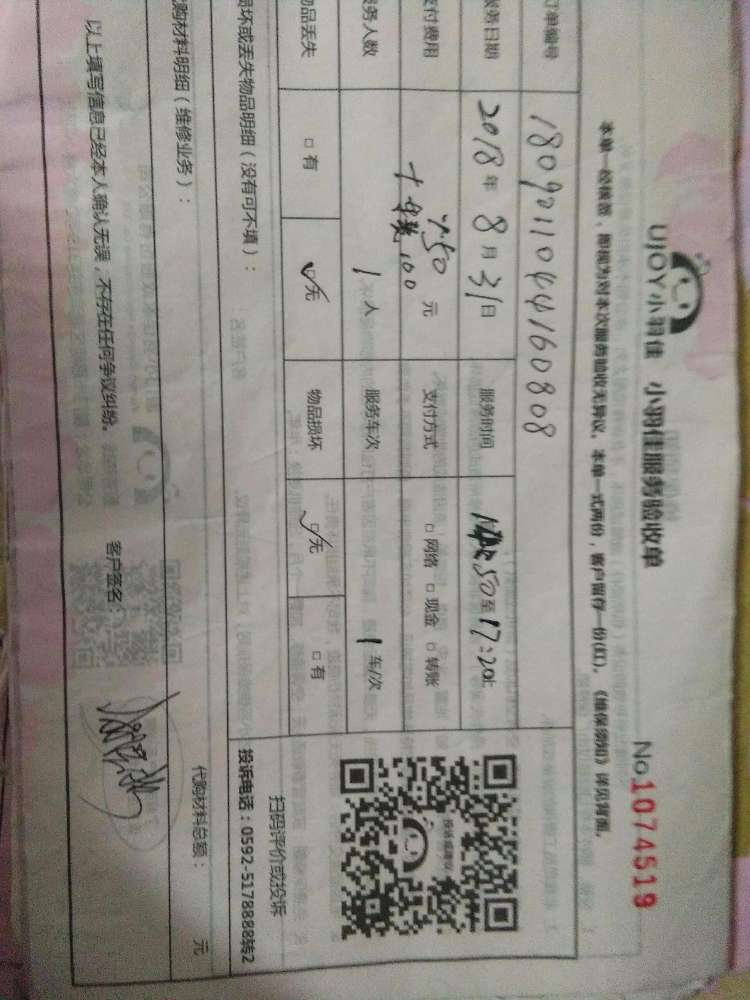 UJOY小羽佳 小羽佳服务验收单
No.1074519
本单一经核签，即视为对本次服务验收无异议。本单一式两份，客户留存一份(红)。《维保须知》详见背面。
订单编号 1809011044160808
服务日期 2018年8月31日 服务时间 50至17:20止
支付费用 750元 支付方式 □网络 □现金 □转账
十 100
服务人数 1人 服务车次 1车/次
物品丢失 □有 ☑无 物品损坏 ☑无 □有
投诉或建议
扫码评价或投诉
投诉电话：0592-5178888转2
损坏或丢失物品明细（没有可不填）：
代购材料明细（维修业务）：
代购材料总额： 元
以上填写信息已经本人确认无误，不存在任何争议纠纷。 客户签名：